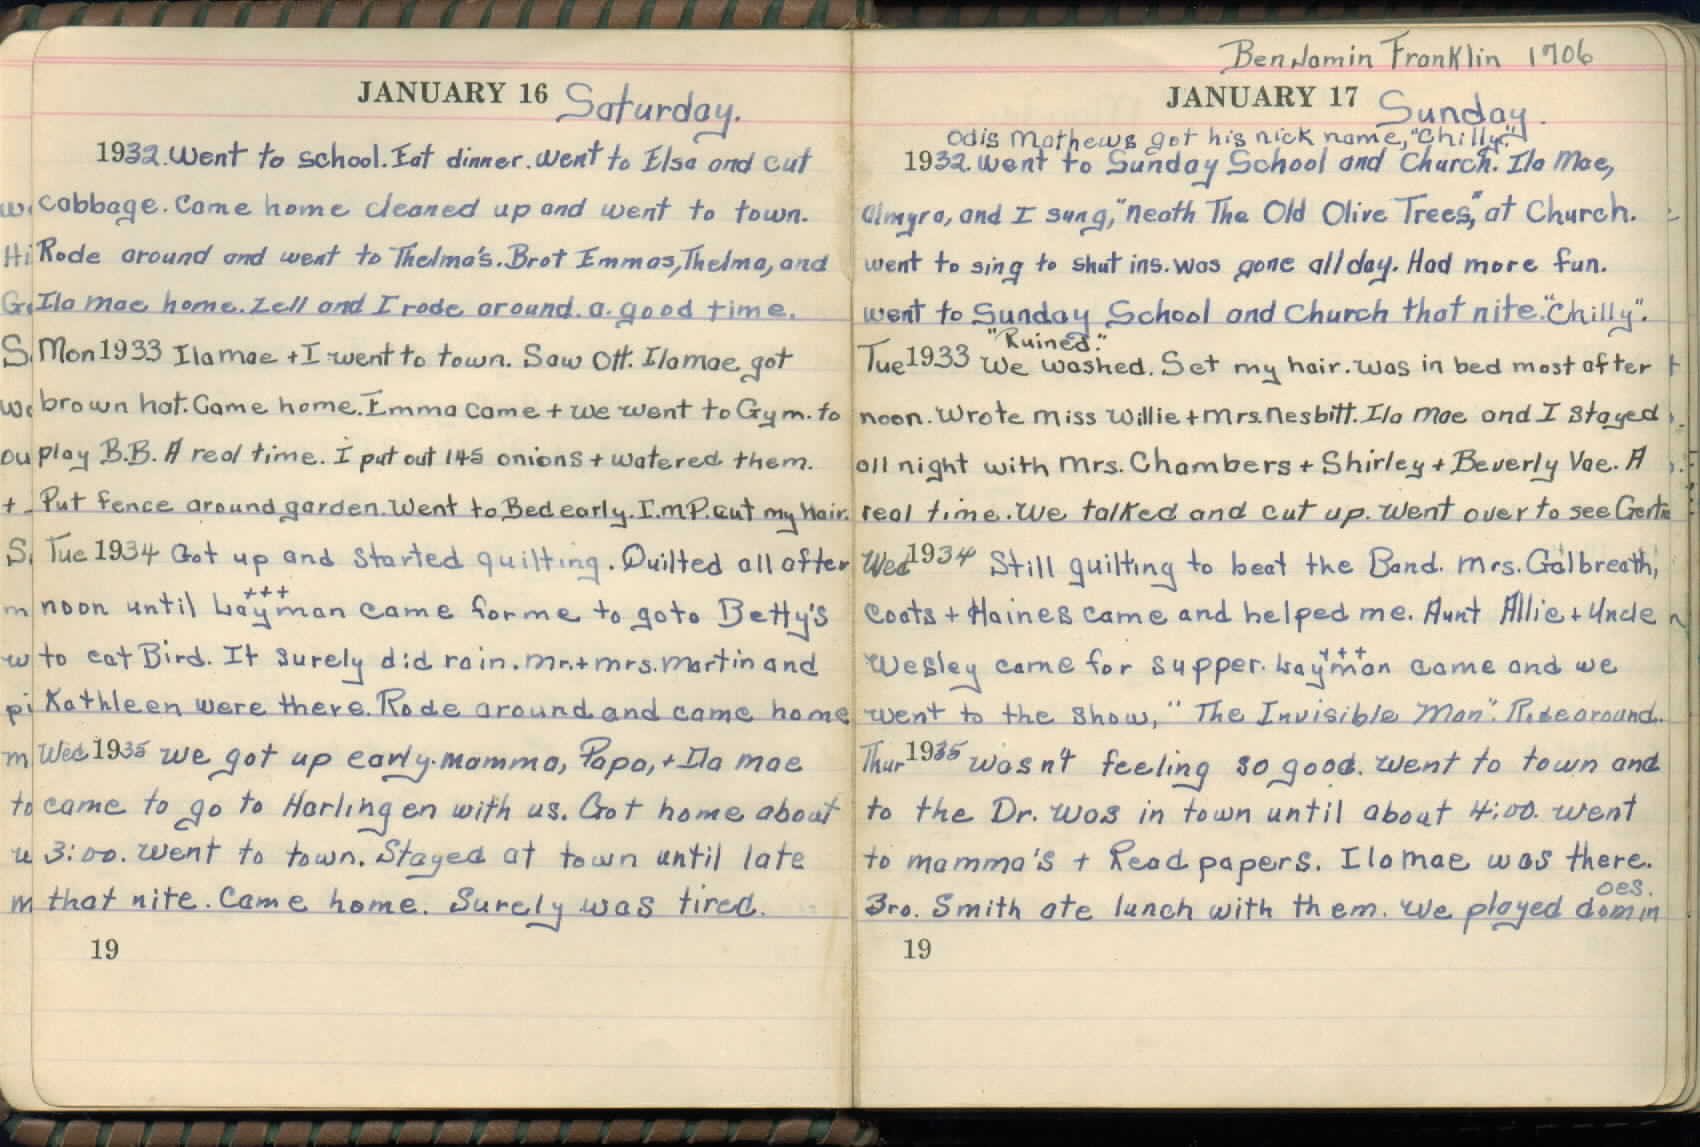 JANUARY 16 Saturday.
1932. Went to school. Eat dinner. Went to Elsa and cut
cabbage. Came home cleaned up and went to town.
Rode around and went to Thelma's. Brot Emmas, Thelma, and
Ila Mae home. Zell and I rode around. a. good time.
Mon 1933 Ila mae + I went to town. Saw Ott. Ila mae got
brown hat. Came home. Emma came + we went to Gym. to
play B.B. A real time. I put out 145 onions + watered them.
Put fence around garden. Went to Bed early. I.M.P. cut my hair.
Tue 1934 Got up and started quilting. Quilted all after
+++
noon until Layman came for me to go to Betty's
to eat Bird. It surely did rain. Mr. + mrs. Martin and
Kathleen were there. Rode around and came home
Wed 1935 We got up early. mamma, Papa, + Ila mae
came to go to Harlingen with us. Got home about
3:00. Went to town. Stayed at town until late
that nite. Came home. Surely was tired.
19
Benjamin Franklin 1706
JANUARY 17 Sunday.
Odis Mathews got his nick name, "Chilly."
1932. Went to Sunday School and Church. Ila Mae,
Almyra, and I sang, "Neath The Old Olive Trees," at Church.
went to sing to shut ins. Was gone all day. Had more fun.
went to Sunday School and Church that nite. "Chilly".
"Ruined."
Tue 1933 We washed. Set my hair. Was in bed most after
noon. Wrote Miss Willie + Mrs. Nesbitt. Ila Mae and I stayed
all night with Mrs. Chambers + Shirley + Beverly Vae. A
real time. We talked and cut up. Went over to see Gertie
Wed 1934 Still quilting to beat the Band. Mrs. Galbreath,
Coats + Haines came and helped me. Aunt Allie + Uncle
+++
Wesley came for supper. Layman came and we
went to the show, "The Invisible Man". Rode around.
Thur 1935 Wasn't feeling so good. Went to town and
to the Dr. Was in town until about 4:00. Went
to mamma's + Read papers. Ila mae was there.
Bro. Smith ate lunch with them. We played domin
oes.
19